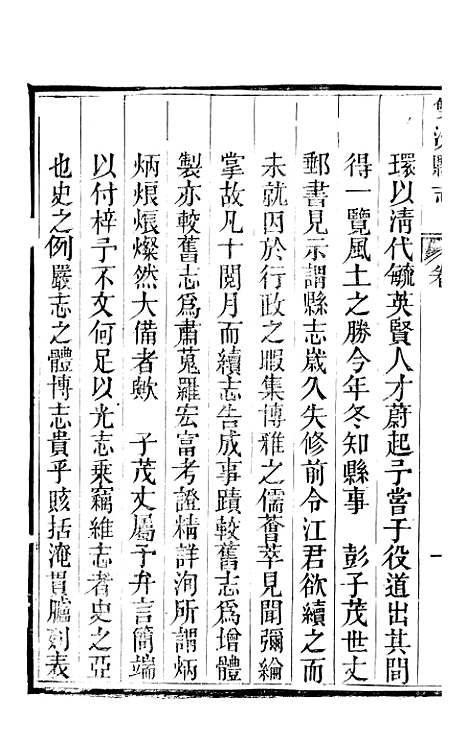 雙流縣志
卷
一
環以清代毓英賢人才蔚起予嘗于役道出其間
得一覽風土之勝今年冬知縣事　彭子茂世丈
郵書見示謂縣志歲久失修前令江君欲續之而
未就因於行政之暇集博雅之儒薈萃見聞彌綸
掌故凡十閱月而續志告成事蹟較舊志爲增體
製亦較舊志爲肅蒐羅宏富考證精詳洵所謂炳
炳烺烺燦然大備者歟　子茂丈屬予弁言簡端
以付梓予不文何足以光志乘竊維志者史之亞
也史之例嚴志之體博志貴乎賅括淹貫臚列表